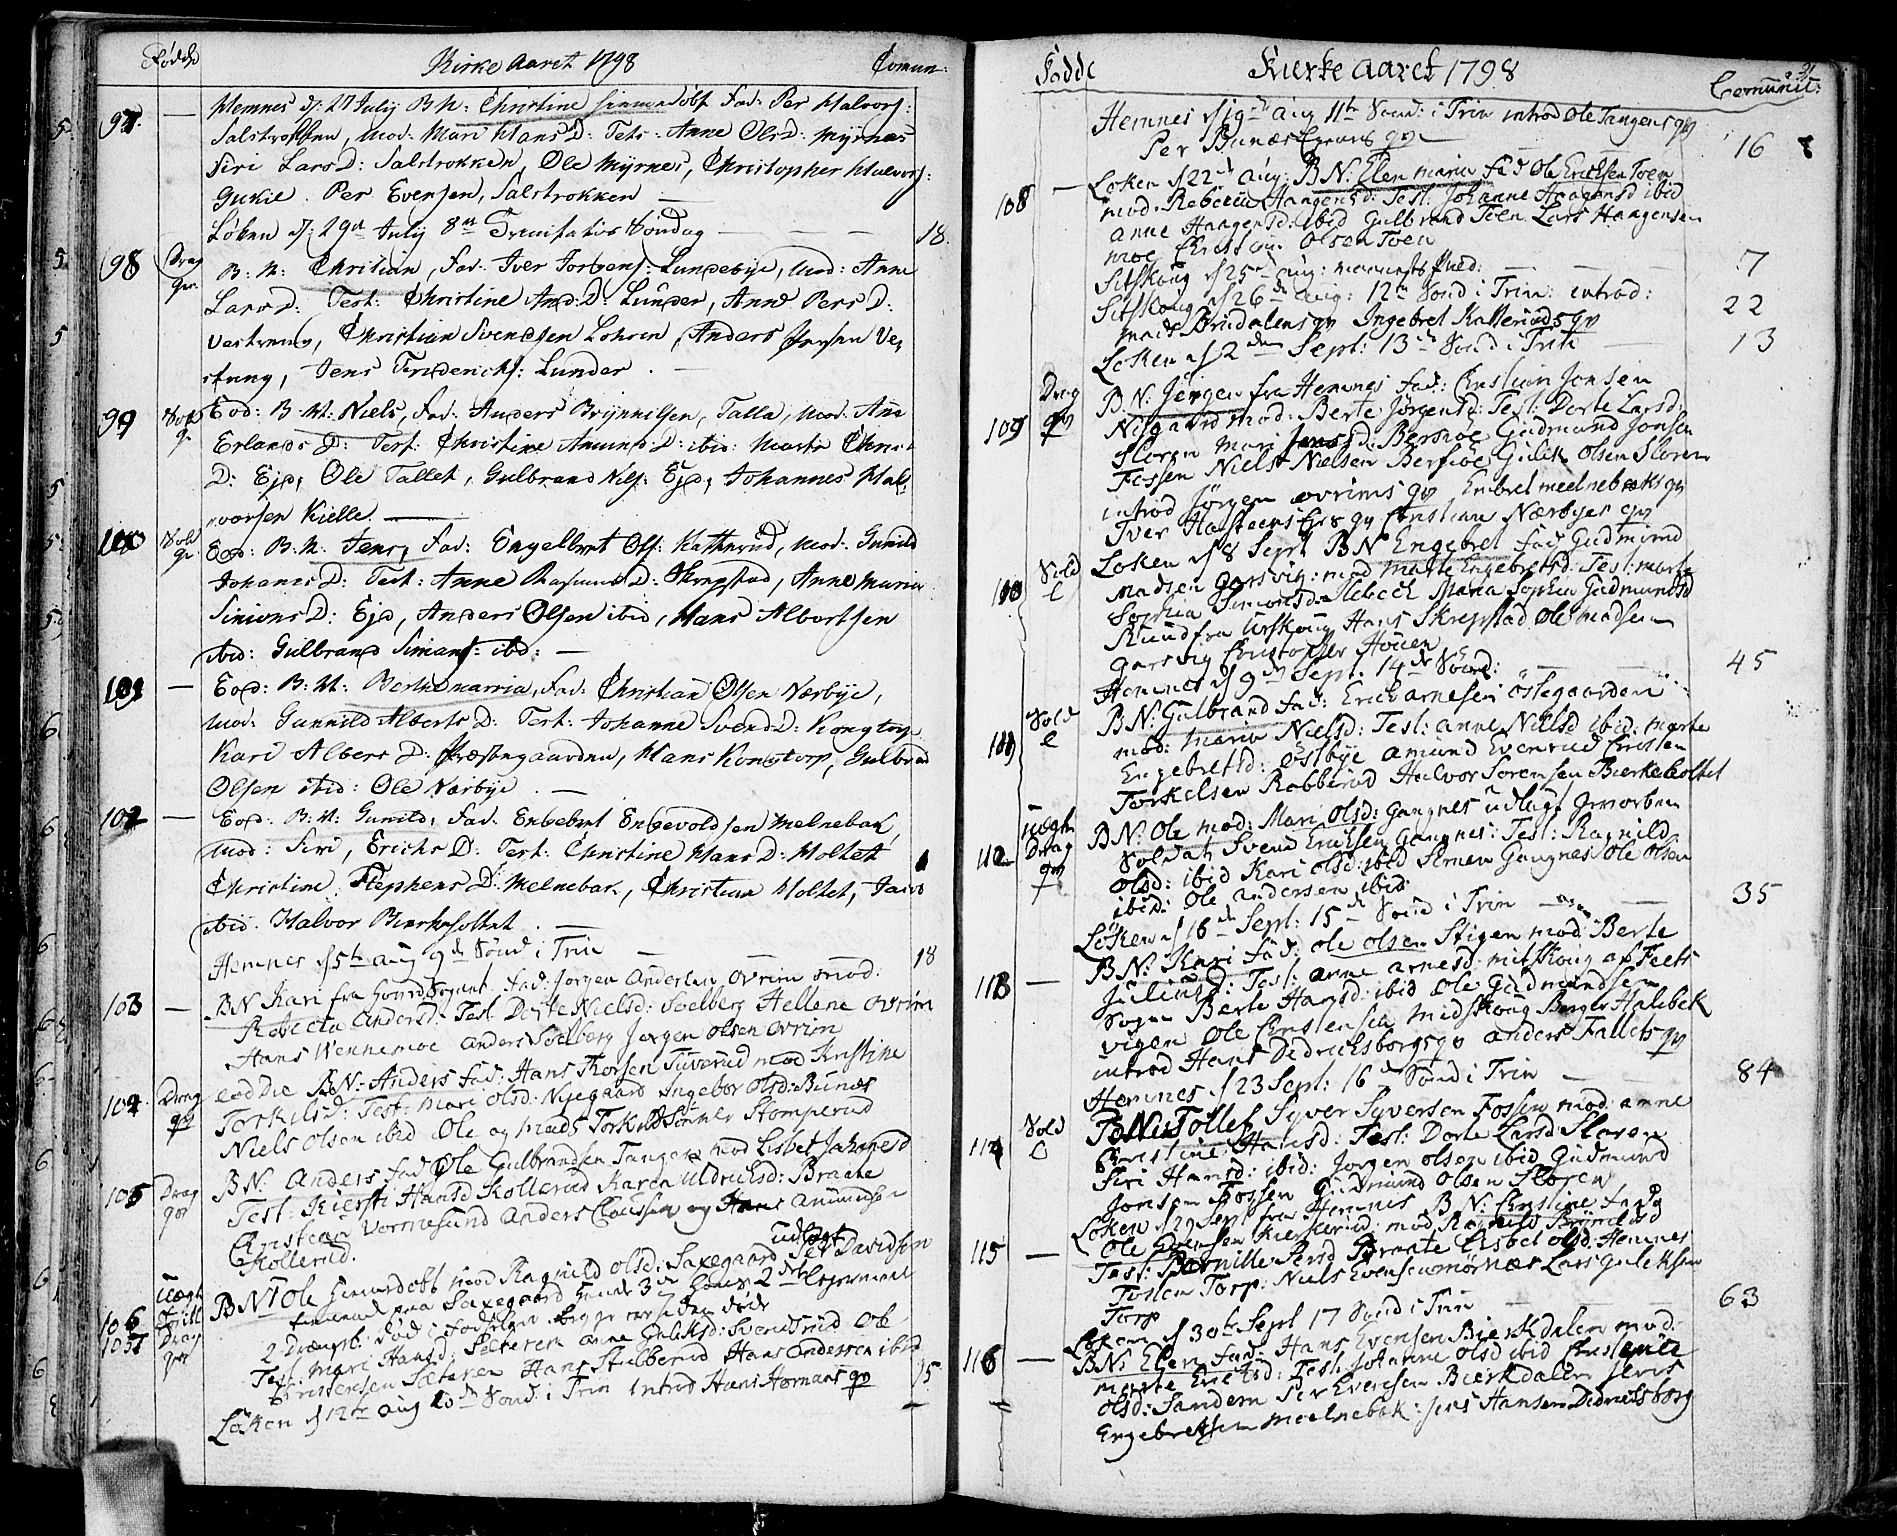 Fødde Kirke Aaret 1798 Comun:
97. — Hemnes d: 27 July B. N: Christine hiemedøbt Fad: Per Halvors:
Salstrokken, Mod: Mari Hans D: Test: Anne Ols D: Myrnæs
Siri Lars D: Salstrokken, Ole Myrnes, Christopher Halvors:
Gukil Per Evensen, Salstrokken —
Løken d: 29de July 8de Trinitatis Søndag — 18.
98 Drag B. N: Christian, Fad: Iver Torgens: Lundebye, Mod: Anne
Lars D: Test: Christine And: D: Lunder, Anne Pers D:
Vestreng, Christian Svendsen Lohren, Anders Ve,
streng, Jens Frederichs: Lunder. —
99 Sold Eod: B. N: Niels, Fad: Anders Brynnilsen, Talla, Mod: Ane
Erlands D: Test: Christine Amunds D: ibid: Marte Christ
D: Ejd, Ole Tallet, Gulbrand Nils: Ejd, Johannes Hal,
vorsen Kielle. —
100 Sold Eod: B. N: Jens, Fad: Engelbret Ols: Kattnrud, Mod: Gunild
Johanes D: Test: Anne Rasmus D: Skrepstad, Anne Maria
Simons D: Ejd, Anders Olsen ibid, Hans Albertsen
ibid: Gulbrand Simons: ibd: —
101 — Eod: B. N: Berthe maria, Fad: Christian Olsen Nærbye,
Mod: Gunnild Alberts D: Test: Johanne Svends D: Kongtorp
Kari Albers D: Præstegaarden, Hans Kongtorp, Gulbrand
Olsen ibid: Ole Nærbye. —
102 — Eod: B. N: Gunild, Fad: Engebret Engevoldsen Melnebak,
Mod: Siri, Erichs D: Test: Christine Hans D: Holtet
Christine Stephens D: Melnebak, Christian Holtet, Jacob
ibid. Halvor Bierkeholtet. —
Hemnes d 5te aug 9de Sønd i Trin — 18
103 — BN Kari fra Høur Sogent. fad: Jørgen Andersen Ovrim mod:
Rebecca Andersd: Test Dorte Nielsd: Soelberg Hellene Ovrim
Hans Wennemoe Anders Soelberg Jørgen Olsen Ovrim
104. Drag eod Die BN: Anders fad: Hans Thorsen Tuverud mod Kristine
Torkilsd: Test: Mari olsd: Nyegaard Ingebor olsd: Bunæs
Niels Olsen ibid Ole og Mads Torkildsønner Stomperud
105 Drag BN: Anders fad Ole Gulbrandsen Tangen mod Lisbet Johanesd
Test: Kiersti Hansd Kollerud Karen Uldrichsd: Braate
Christian Vormesund Anders Claussen og Hans Amundsen
Kollerud.
udlagt
106 uægte BN Ole hiemedøbt mod Ragnild olsd: Saxegaard Per Davidsen
107 Drag paa Saxegaard 3de 2det Leyermaal
2 Drengeb: fød døde
Test: Mari Hansd: Sæteren Anne Guliksd: Svendsrud Ole
Christensen Sæteren Hans Stulberud Hans Andersen ibid
Løken d 12te Aug 10de Sønd i Trin introd Hans Homans qv 15

Fødde Kierke Aaret 1798 Comunic:
Hemnes d 19de Aug 11te Sønd: i Trin introd Ole Tangens qv
Per Bunæs Egrens qv — 16
108 — Løken d 22de Aug: BN: Elen maria fad Ole Erichsen Toen
mod: Rebecca Haagensd: Test: Johanne Haagensd ibid
Anne Haagensd: ibid Gulbrand Toen Lars Haagensen
moe Christian Olsen Toen
Sitskoug d 25de Aug: — 7
Sitskoug d 26de Aug: 12te Sønd i Trin: introd: 22
Mads Brudalens qv Ingebret Katteruds qv
Løken d 2den Sept: 13de Sønd i Trin — 13
109 Drag qv BN: Jørgen fra Hemnes fad: Christian Jonsen
Nilgaard mod: Berte Jørgensd: Test: Dorte Larsd:
Sloren Mari Jensd: Bersnoe Gudmund Jonsen
Fossen Niels Nielsen Bersnoe Gulik Olsen Sloren
introd Jørgen Ovrims qv Enbret meelnebeks qv
Iver Hasteens qv Christian Nærbyes qv
110 Sold Løken d 8 Sept BN Engebret fad Gudmund
Madsen Garsvig: mod Marte Engebretsd: Test: Marte
Sophia Simonsd: Maria Sophia Gudmundsd
Riund fra Urskoug Hans Skrepstad Ole Madsen
Garsvig Christopher Houen
Hemnes d 9de Sept. 14de Sønd: — 45
111 Sold BN: Gulbrand fad: Erich Arnesen Østegaarden
mod: Maria Nielsd: Test: Anne Nielsd ibid: Marte
Engebretsd: Østbye Amund Evenrud Christen
Torkelsen Rabberud Halvor Sørensen Bierkeholtet
112 uægte Drag qv BN: Ole mod: Mari Olsd: Gangnes udlagt
Soldat Svend Erichsen Gangnes: Test: Ragnild
olsd: ibid Kari olsd: ibid Simen Gangnes Ole Olsen
ibid: Ole Andersen ibid:
Løken d 16de Sept: 15de Sønd i Trin — 35
113 — BN: Kari fad: Ole Olsen Stigen mod: Berte
Juliusd: Test: Anne Arnesd: mitskoug af Feets
Sogn Berte Hansd: ibid Ole Gudmundsen
vigen Ole Christensen Midskoug Børger Halebek
introd Hans Didrichsborgs qv Anders Fallets qv
Hemnes d 23 Sept: 16de Sønd i Trin — 84
114 Sold BN Tollef Syver Syversen Fossen mod: Anne
Christine Hansd: Test: Dorte Larsd Sloren
Siri Hansd: ibid: Jørgen olsen ibid Gudmund
Jonsen Fossen Gudmund Olsen Sloren
115 — Løken d 29 Sept fra Hemnes BN: Christine fad
Ole Evensen Kierkerud mod Ragnild
Test: Pernille Persd Braate Lisbet Olsd: Hemnes
Fosten Torp: Niels Evensen Mørnæs Lars Guliksen
Torp
Løken d 30te Sept 17 Sønd i Trin — 63
116 — BN: Elen fad: Hans Evensen Bierkdalen mod:
Marte Erichsd: Test: Johanne Olsd ibid Christense
olsd: Sandem Per Evensen Bierkdalen Jens
Engebretsen Moelnebek: Jens Hansen Didrichsborg